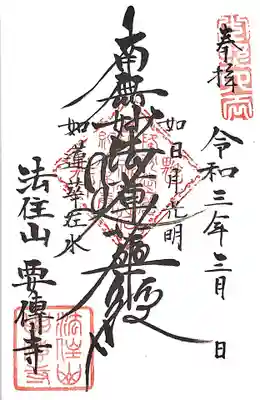 奉拝
令和三年三月 日
如日月光明
南無妙法蓮華経
如蓮華在水
法住山 要傳寺